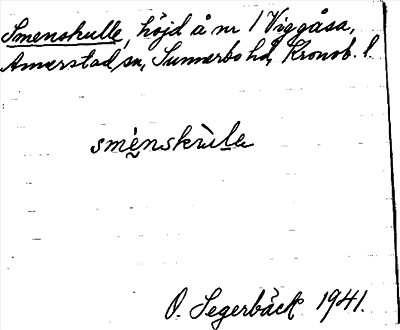 Smenskulle, höjd å nr 1 Viggåsa,
Annerstad sn, Sunnerbo hd, Kronob. l.
smènskùla
O. Segerbäck 1941.